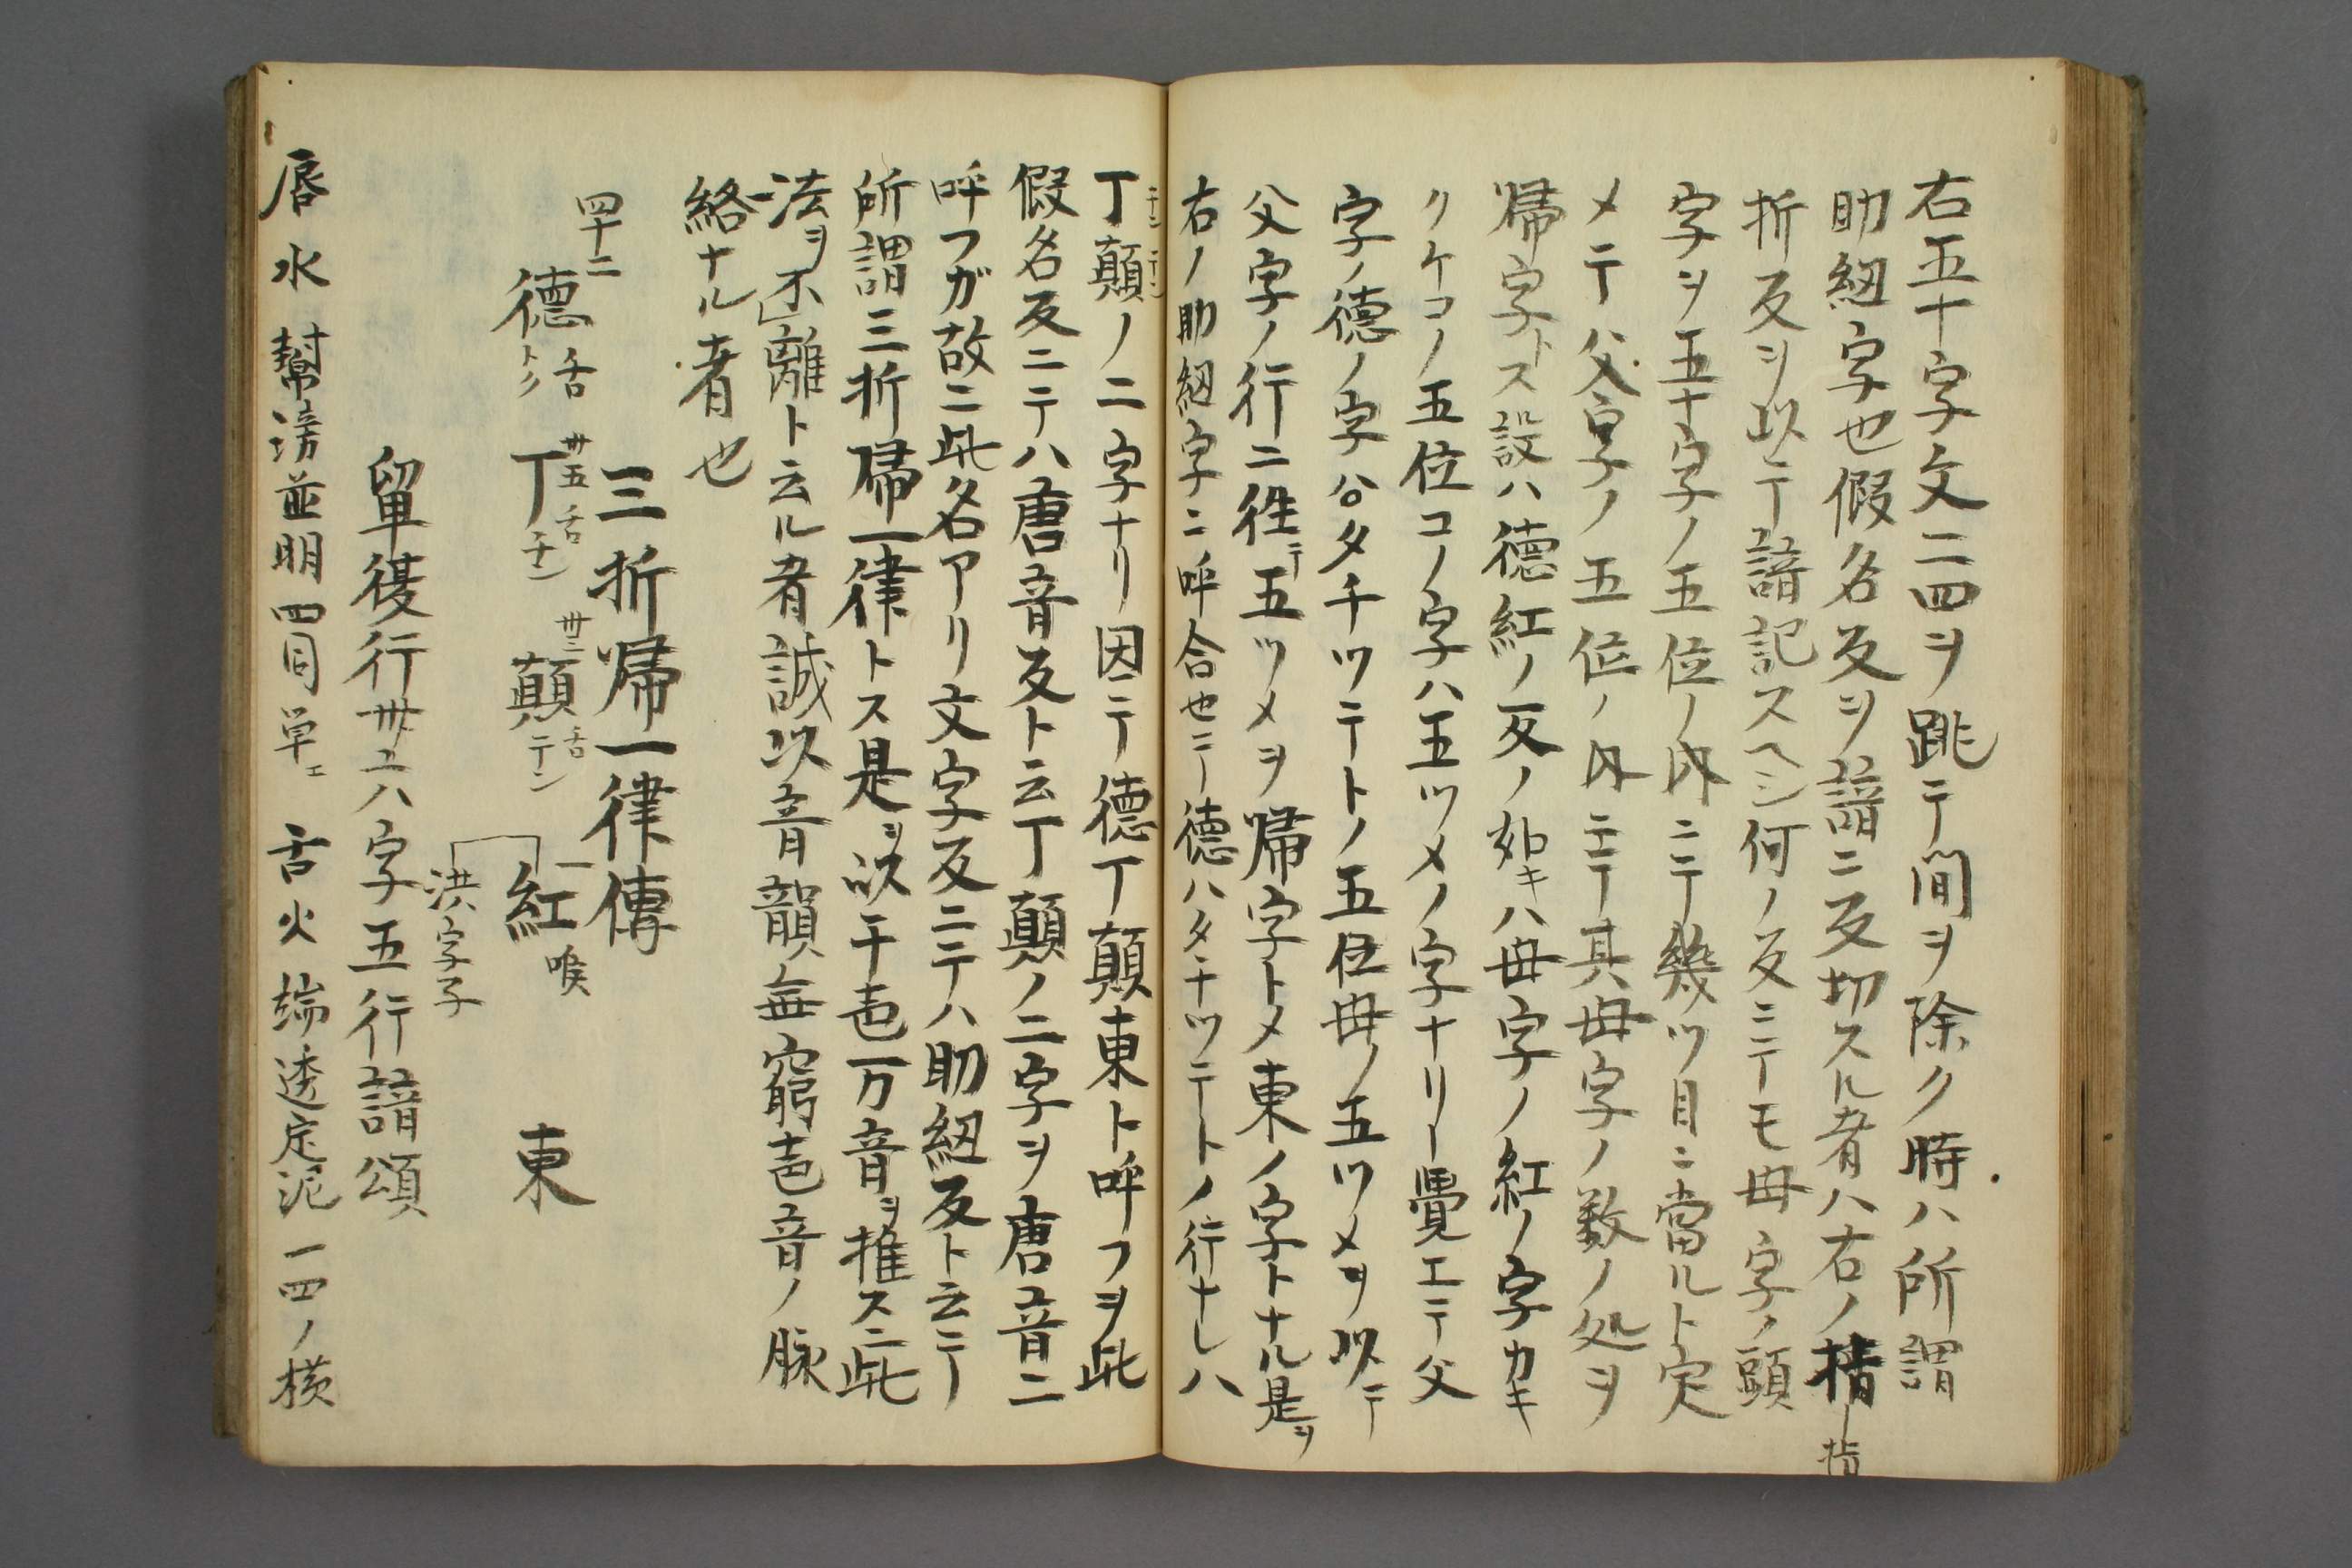 右五十字文二四ヲ跳テ間ヲ除ク時ハ所謂
助紐字也假名反ヲ諳ニ反切スル者ハ右ノ
折反ヲ以テ諳記スヘシ何ノ反ニテモ毋字ノ頭
字ヲ五十字ノ五位ノ内ニテ幾ツ目ニ當ルト定
メテ父字ノ五位ノ内ニテ其毋字ノ数ノ処ヲ
帰字トス設ハ德紅ノ反ノ如キハ毋字ノ紅ノ字カキ
クケコノ五位コノ字ハ五ツメノ字ナリト覺エテ父
字ノ德ノ字ハタチツテトノ五位毋ノ五ツメヲ以テ
父字ノ行ニ徃テ五ツメヲ帰字トメ東ノ字トナル是ヲ
右ノ助紐字ニ呼合セテ德ハタチツテトノ行ナレハ
丁顛ノ二字ナリ因テ德丁顛東ト呼フヲ此
假名反ニテハ唐音反ト云丁顛ノ二字ヲ唐音ニ
呼フガ故ニ此名アリ文字反ニテハ助紐反ト云テ
所謂三折帰一律トス是ヲ以千壱万音ヲ推スニ此
法ヲ不離ト云ル者誠以音韻無窮壱音ノ脉
絡ナル者也
三折帰一律傳
四十二 德トク 舌 卅五 丁チン 舌 卅三 顛テン 舌 一 紅 喉 東
洪字子
單複行卅六字五行諳頌
唇水 幇滂並明四同単ニ 舌火 端透定泥一四ノ横